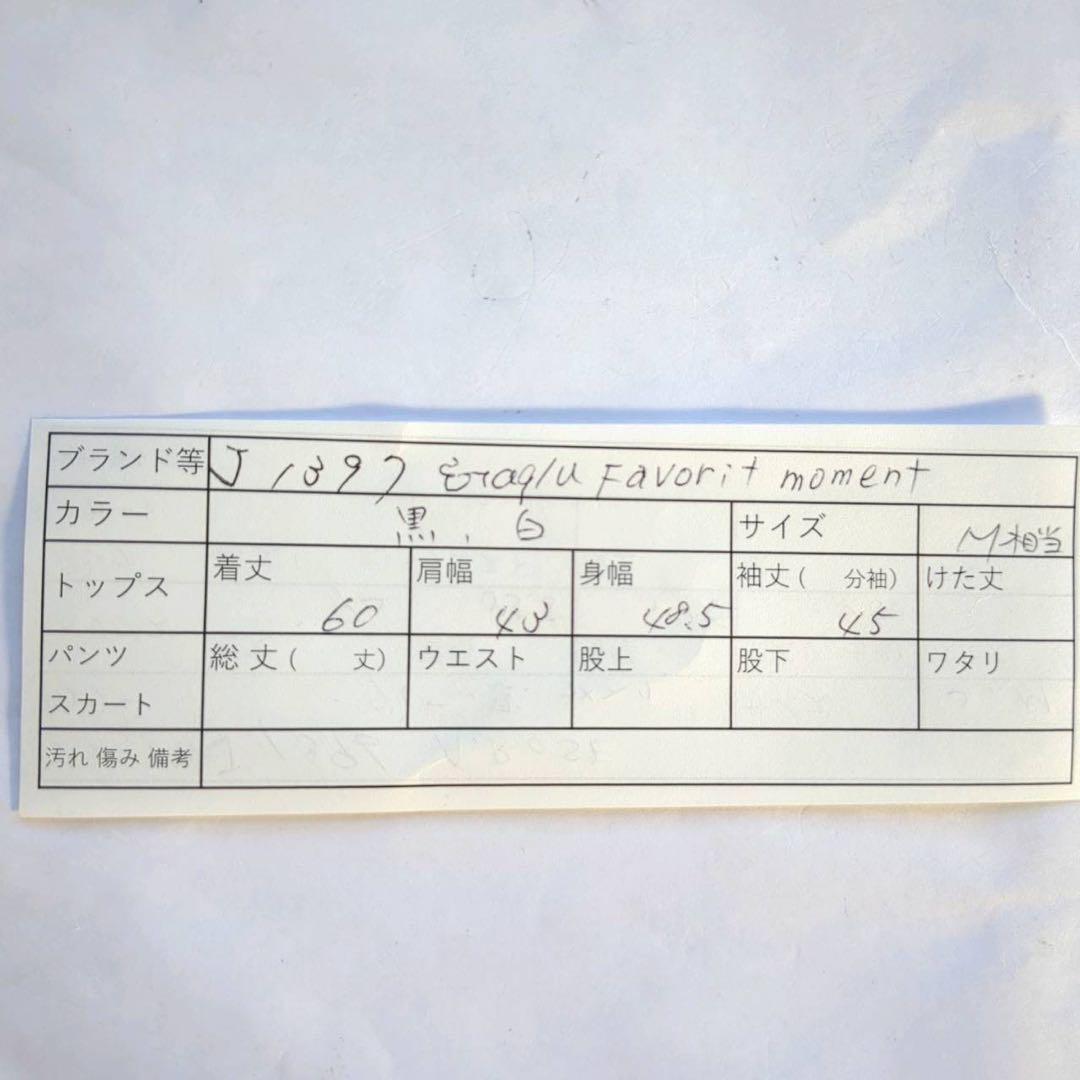 ブランド等 J1397 Eraglu Favorit moment
カラー 黒、白 サイズ M相当
トップス 着丈 60 肩幅 43 身幅 48.5 袖丈( 分袖) 45 けた丈
パンツ スカート 総丈( 丈) ウエスト 股上 股下 ワタリ
汚れ 傷み 備考